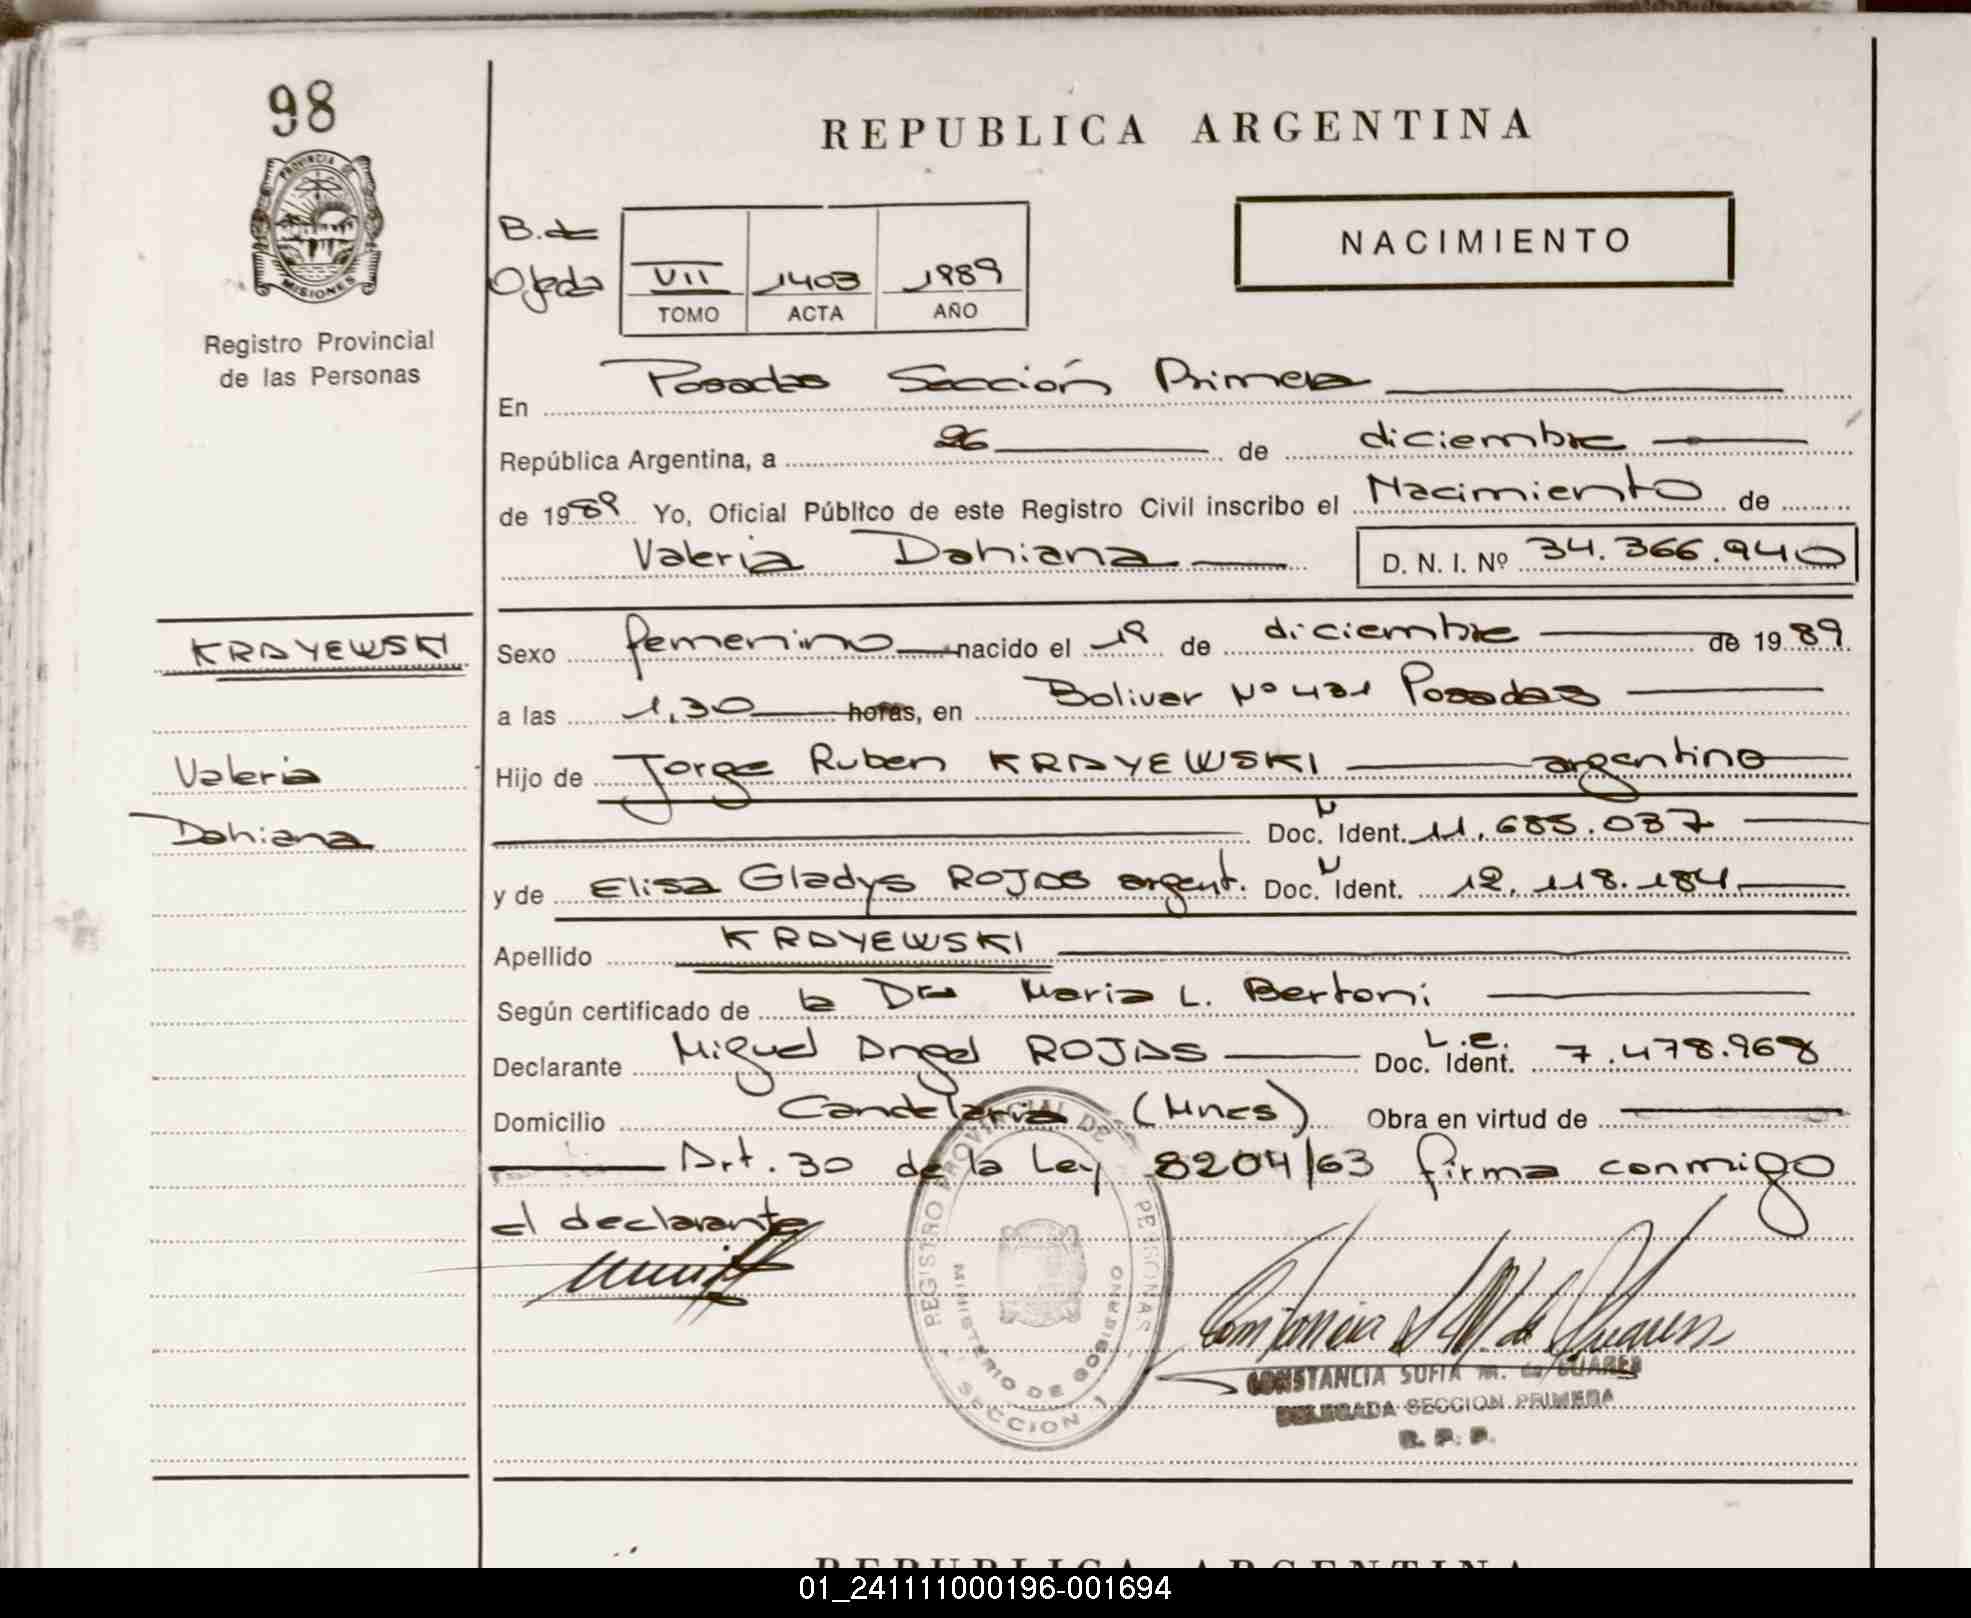 98
REPUBLICA ARGENTINA
PROVINCIA DE
MISIONES
Registro Provincial
de las Personas
B. de
Ojeda
VII 1403 1989
TOMO ACTA AÑO
NACIMIENTO
En Posadas Sección Primera
República Argentina, a 26 de diciembre
de 1989 Yo, Oficial Público de este Registro Civil inscribo el Nacimiento de
Valeria Dahiana D. N. I. Nº 34.366.940
KRAYEWSKI
Sexo femenino nacido el 19 de diciembre de 1989
a las 1,30 horas, en Bolivar Nº 431 Posadas
Valeria
Hijo de Jorge Ruben KRAYEWSKI argentino
Dahiana
Doc. Ident. 11.685.037
y de Elisa Gladys ROJAS argent. Doc. Ident. 12.118.184
Apellido KRAYEWSKI
Según certificado de la Dra Maria L. Bertoni
Declarante Miguel Angel ROJAS Doc. Ident. L.E. 7.478.968
Domicilio Candelaria (Mnes) Obra en virtud de
Art. 30 de la Ley 8204/63 firma conmigo
el declarante
REGISTRO PROVINCIAL DE PERSONAS
MINISTERIO DE GOBIERNO
SECCION 1
CONSTANCIA SOFIA M. de SUAREZ
DELEGADA SECCION PRIMERA
R. P. P.
REPUBLICA ARGENTINA
01_241111000196-001694